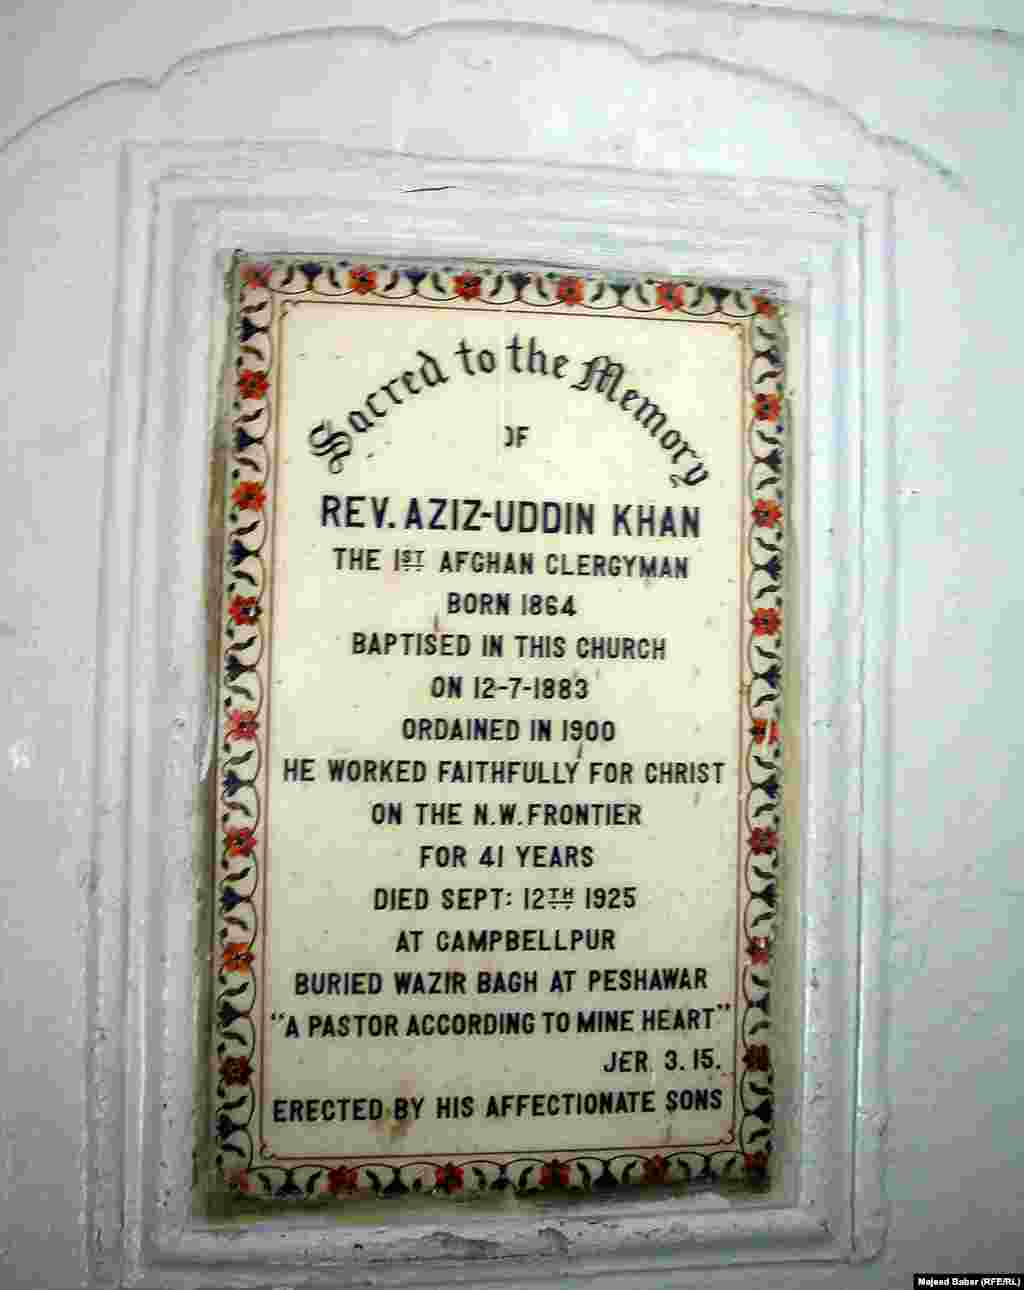 Sacred to the Memory
OF
REV. AZIZ-UDDIN KHAN
THE 1ST AFGHAN CLERGYMAN
BORN 1864
BAPTISED IN THIS CHURCH
ON 12-7-1883
ORDAINED IN 1900
HE WORKED FAITHFULLY FOR CHRIST
ON THE N.W. FRONTIER
FOR 41 YEARS
DIED SEPT: 12TH 1925
AT CAMPBELLPUR
BURIED WAZIR BAGH AT PESHAWAR
"A PASTOR ACCORDING TO MINE HEART"
JER 3. 15.
ERECTED BY HIS AFFECTIONATE SONS
Majeed Babar (RFE/RL)